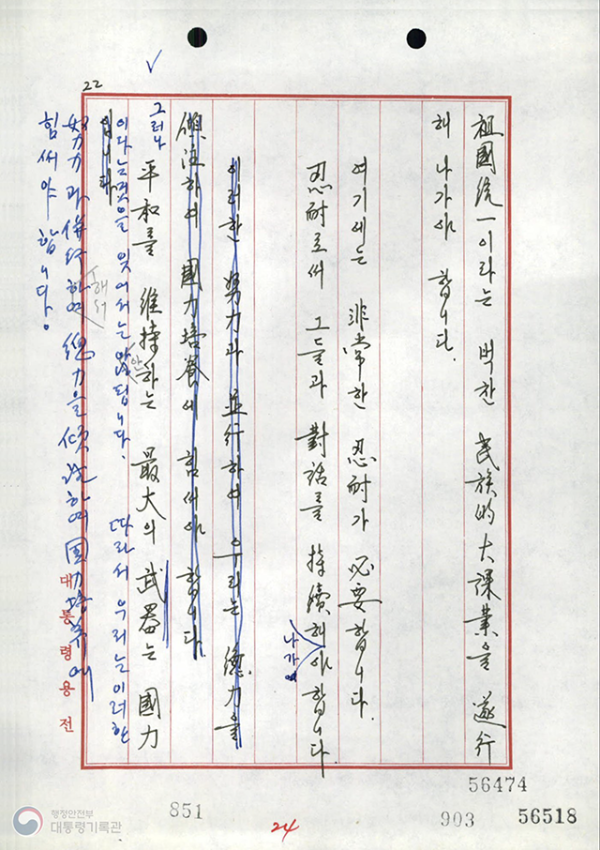 22
祖國統一이라는 벅찬 民族的 大課業을 遂行
해 나가야 합니다.
여기에는 非常한 忍耐가 必要합니다.
忍耐로써 그들과 對話를 持續해야 합니다.
나가
이러한 努力과 並行하여 우리는 總力을
傾注하여 國力培養에 힘써야 합니다.
그러나
平和를 維持하는 最大의 武器는 國力
입니다
이라는것을 잊어서는 않됩니다. 따라서 우리는 이러한
안
努力과 倂行하여 總力을 傾注하여 國力培养에
해서
힘써야 합니다.
대통령용전
56474
851
24
903
56518
행정안전부
대통령기록관